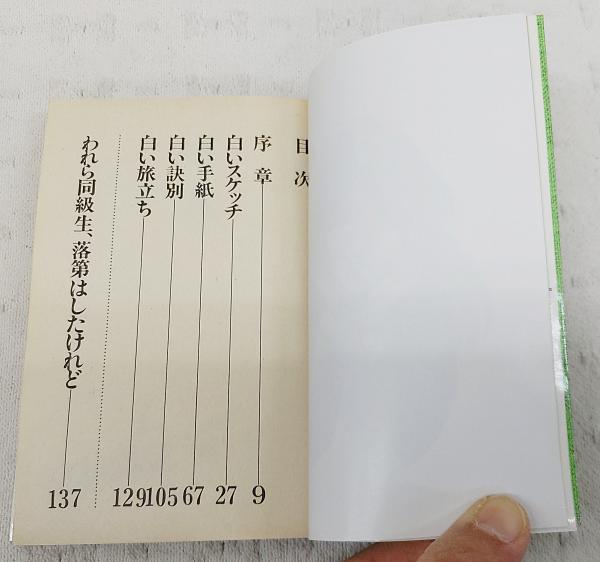 目次
序章 9
白いスケッチ 27
白い手紙 67
白い訣別 105
白い旅立ち 129
われら同級生、落第はしたけれど 137